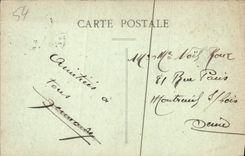 54
CARTE POSTALE
Amitiés à
tous
Mr Me Noël
81 Rue Paris
Montreuil S/Bois
Seine